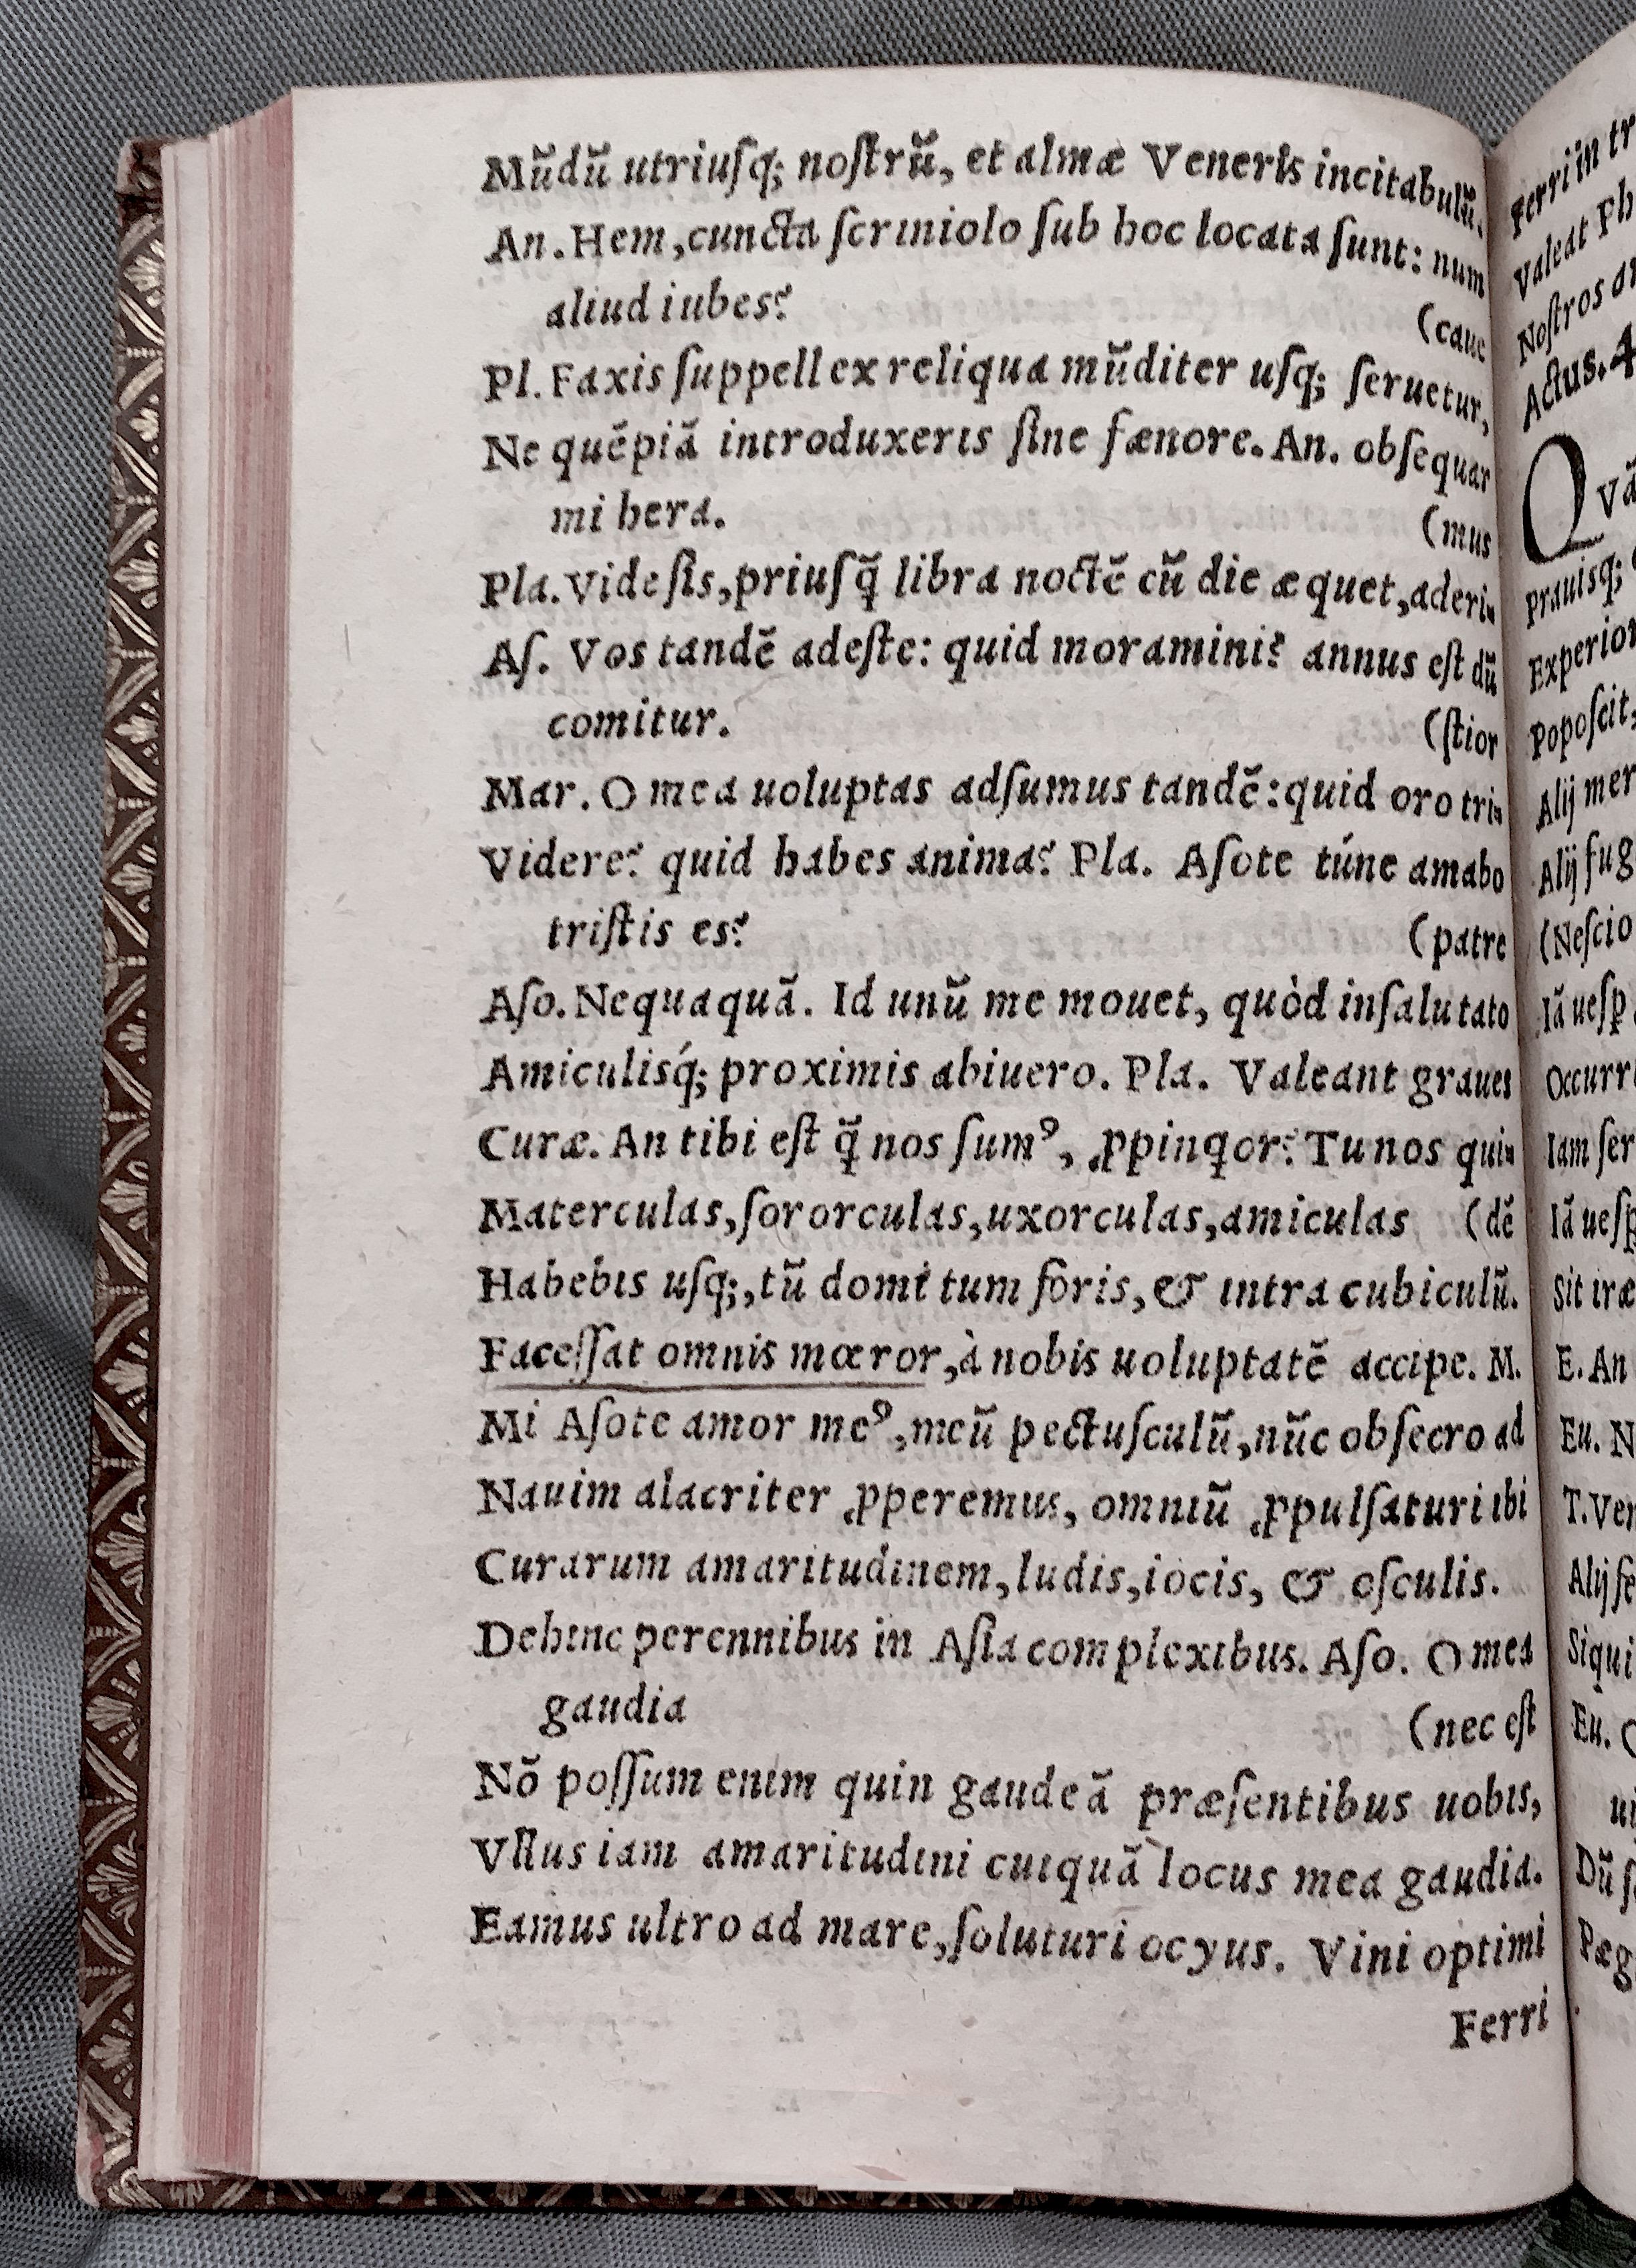 Mũdũ utriuſq; noſtrũ, et almæ Veneris incitabulũ.
An. Hem, cuncta ſcriniolo ſub hoc locata ſunt: num
aliud iubes?
(caue
Pl. Faxis ſuppellex reliqua mũditer uſq; ſeruetur,
Ne quẽpiã introduxeris ſine fænore. An. obſequar
mi hera.
(mus
Pla. Vide ſis, priuſq̃ libra noctẽ cũ die æquet, aderi-
Aſ. Vos tandẽ adeſte: quid moramini? annus eſt dũ
comitur.
(ſtior
Mar. O mea uoluptas adſumus tandẽ: quid oro tri-
Videre? quid habes anima? Pla. Aſote túne amabo
triſtis es?
(patre
Aſo. Nequaquã. Id unũ me mouet, quòd inſalutato
Amiculisq́; proximis abiuero. Pla. Valeant graues
Curæ. An tibi eſt q̃ nos ſumꝰ, ꝓpinqͅor? Tu nos qui-
Materculas, ſororculas, uxorculas, amiculas (dẽ
Habebis uſq;, tũ domi tum foris, & intra cubiculũ.
Faceſſat omnis mœror, à nobis uoluptatẽ accipe. M.
Mi Aſote amor meꝰ, meũ pectuſculũ, nũc obſecro ad
Nauim alacriter ꝓperemus, omniũ ꝓpulſaturi ibi
Curarum amaritudinem, ludis, iocis, & oſculis.
Dehinc perennibus in Aſia complexibus. Aſo. O mea
gaudia
(nec eſt
Nõ poſſum enim quin gaudeã præſentibus uobis,
Vllus iam amaritudini cuiquã locus mea gaudia.
Eamus ultro ad mare, ſoluturi ocyus. Vini optimi
Ferri
Ferri in tr
Valeat Ph
Noſtros
Actus. 4
Q vã
prauisq;
Experior
Popoſcit:
Alij mer
Alij fug
(Neſcio
Iã ueſp
Occurr
Iam ſer
Iã ueſp
Sit iræ
E. An
Eu. N
T. Ver
Alij ſe
Siqui
Eu.
ui
Dũ ſ
Pæg